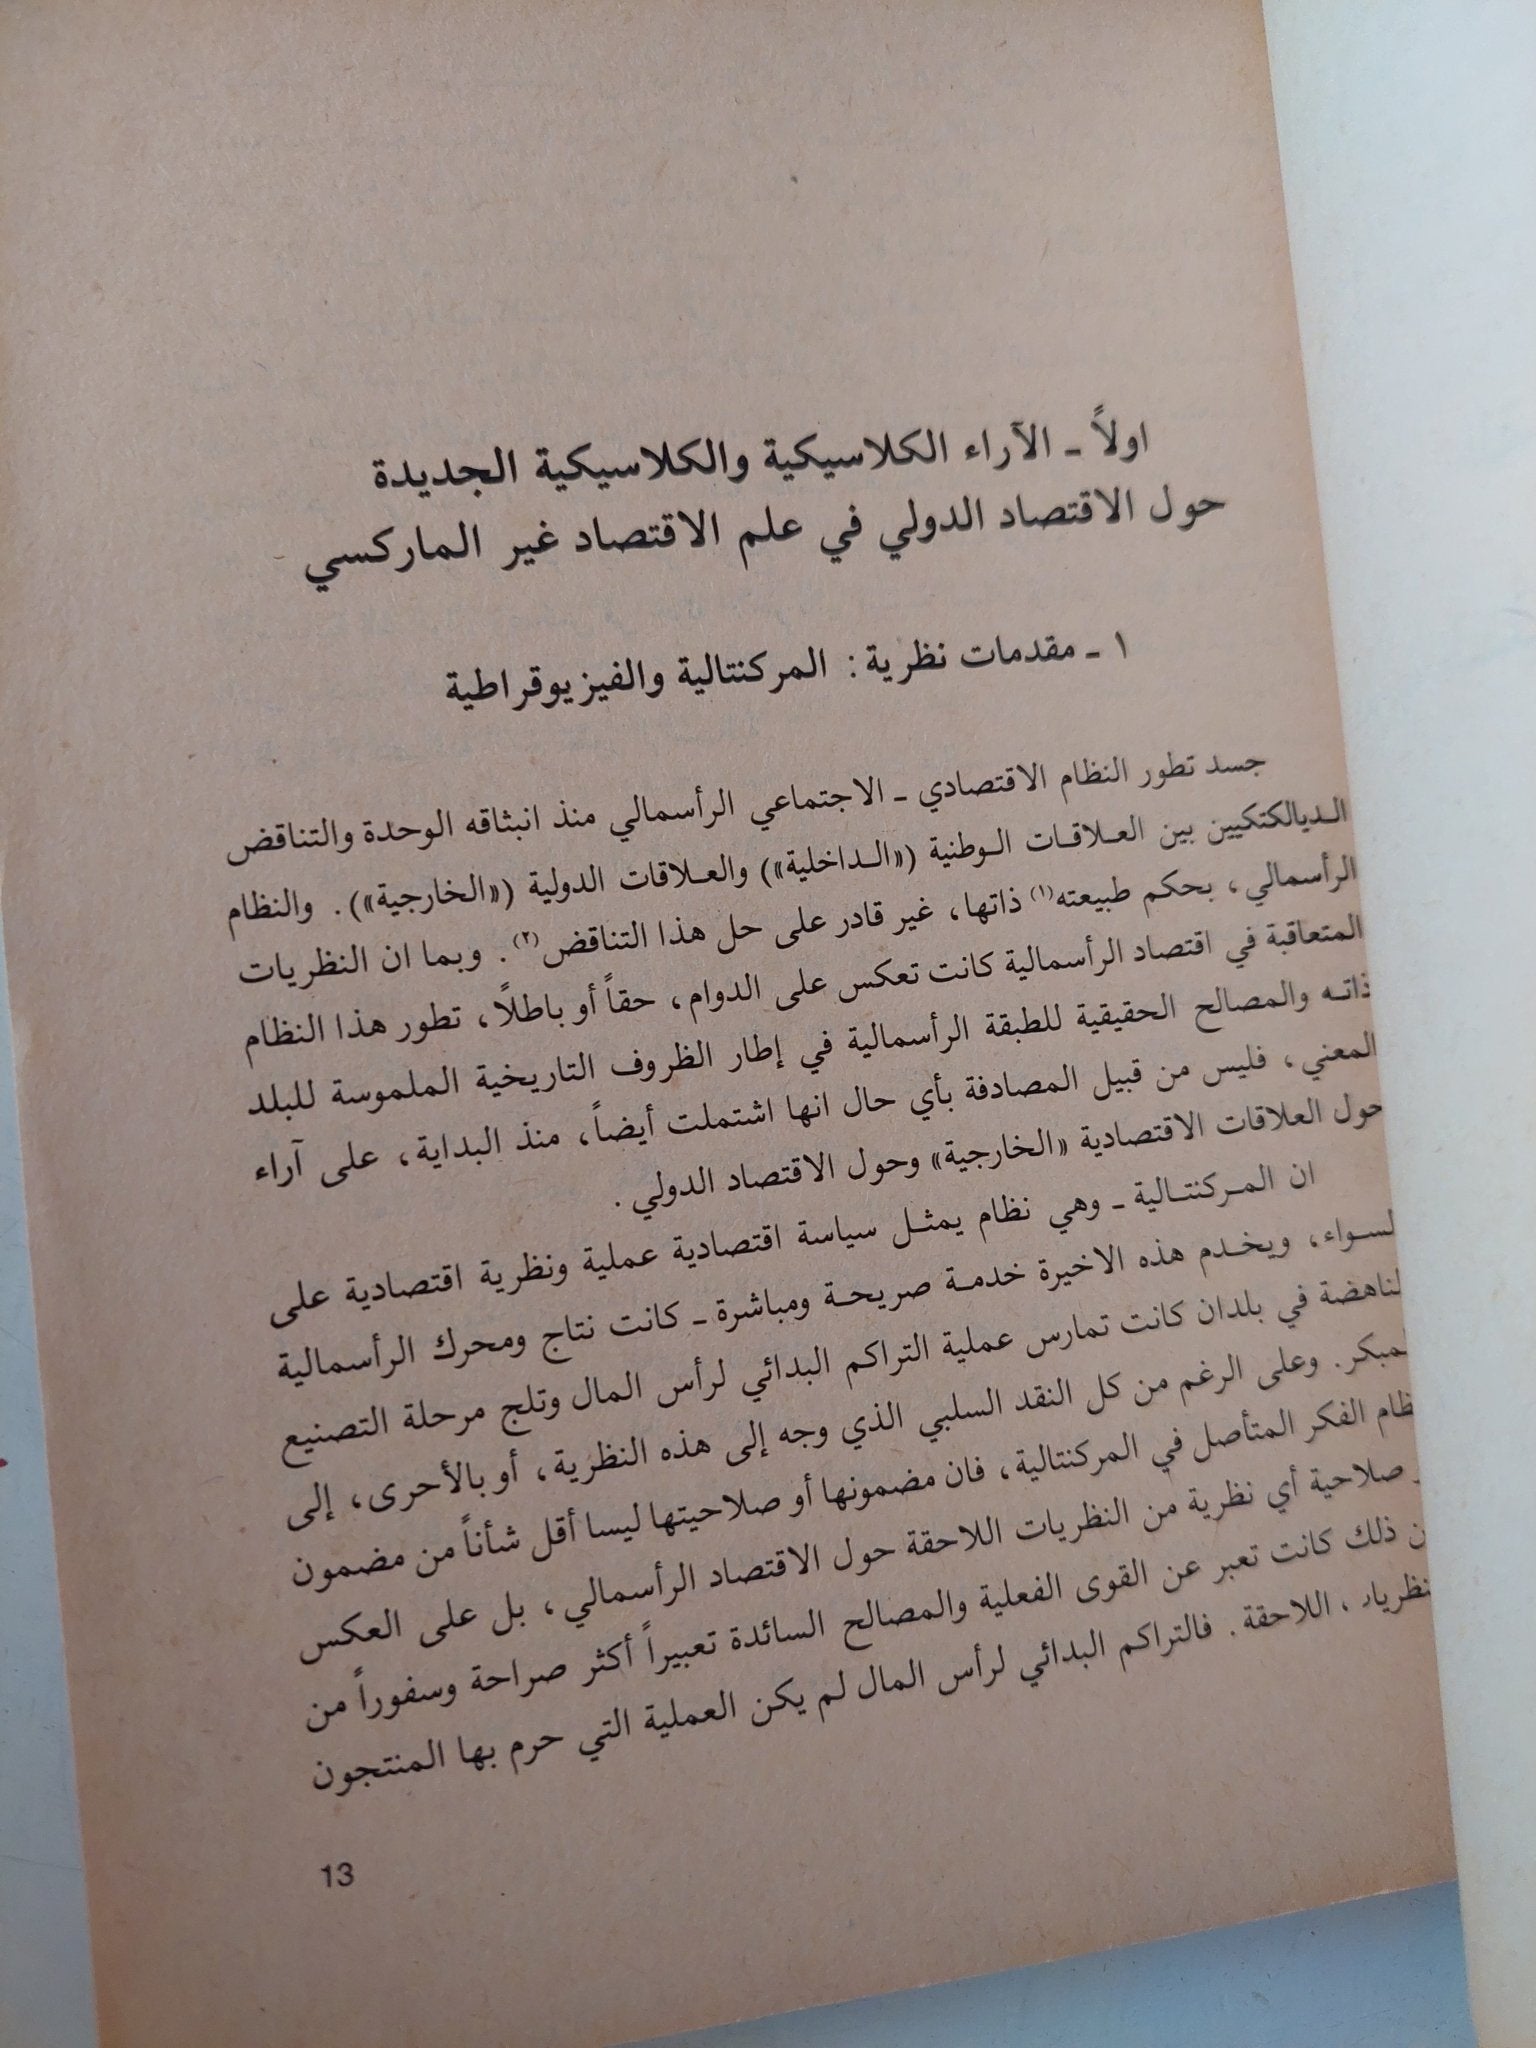 اولاً ـ الآراء الكلاسيكية والكلاسيكية الجديدة
حول الاقتصاد الدولي في علم الاقتصاد غير الماركسي
١ ـ مقدمات نظرية : المركنتالية والفيزيوقراطية
جسد تطور النظام الاقتصادي ـ الاجتماعي الرأسمالي منذ انبثاقه الوحدة والتناقض
الديالكتكيين بين العلاقات الوطنية («الداخلية») والعلاقات الدولية («الخارجية») . والنظام
الرأسمالي ، بحكم طبيعته(١) ذاتها، غير قادر على حل هذا التناقض(٢) . وبما ان النظريات
المتعاقبة في اقتصاد الرأسمالية كانت تعكس على الدوام، حقاً أو باطلاً، تطور هذا النظام
ذاته والمصالح الحقيقية للطبقة الرأسمالية في إطار الظروف التاريخية الملموسة للبلد
المعني ، فليس من قبيل المصادفة بأي حال انها اشتملت أيضاً، منذ البداية، على آراء
حول العلاقات الاقتصادية «الخارجية» وحول الاقتصاد الدولي .
ان المركنتالية ـ وهي نظام يمثل سياسة اقتصادية عملية ونظرية اقتصادية على
لسواء، ويخدم هذه الاخيرة خدمة صريحة ومباشرة ـ كانت نتاج ومحرك الرأسمالية
لناهضة في بلدان كانت تمارس عملية التراكم البدائي لرأس المال وتلج مرحلة التصنيع
لمبكر . وعلى الرغم من كل النقد السلبي الذي وجه إلى هذه النظرية، أو بالأحرى، إلى
ظام الفكر المتأصل في المركنتالية، فان مضمونها أو صلاحيتها ليسا أقل شأناً من مضمون
صلاحية أي نظرية من النظريات اللاحقة حول الاقتصاد الرأسمالي، بل على العكس
ن ذلك كانت تعبر عن القوى الفعلية والمصالح السائدة تعبيراً أكثر صراحة وسفوراً من
اللاحقة . فالتراكم البدائي لرأس المال لم يكن العملية التي حرم بها المنتجون
13